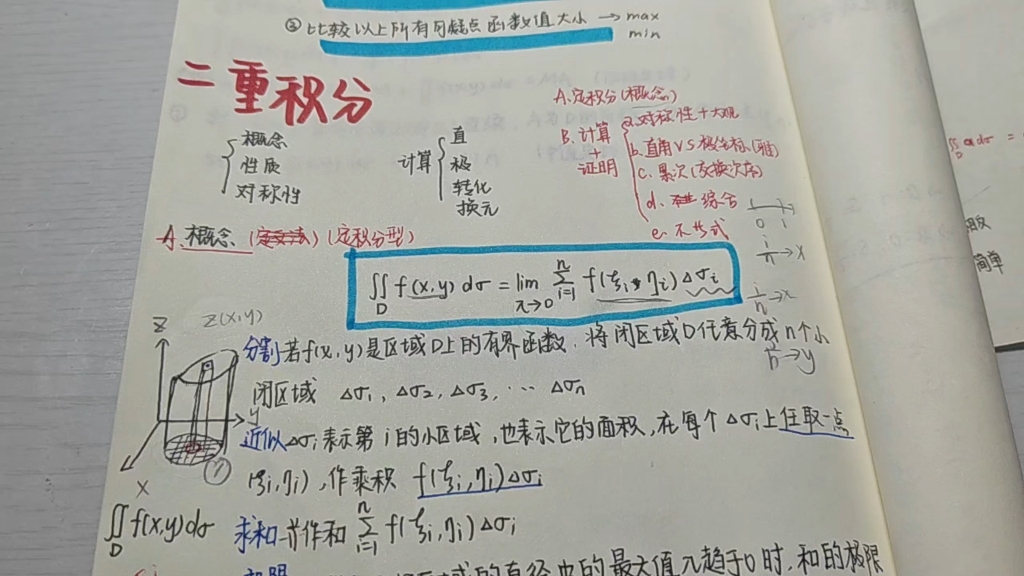 ③比较以上所有可疑点函数值大小 → max
min
二重积分
概念
性质
对称性
计算
直
极
转化
换元
A.定积分(概念)
B.计算
+
证明
a.对称性+大观
b.直角VS极坐标(难)
c.累次(交换次序)
d. 综合
e.不等式
A.概念 (定积分型)
∬ f(x,y)dσ = lim Σ f(ξi,ηi)Δσi
D λ→0 i=1 n
0 1
i/n→x
i/n→x
/n→y
Z Z(x,y)
y
x
①
分割 若f(x,y)是区域D上的有界函数.将闭区域D任意分成n个小
闭区域 Δσ1,Δσ2,Δσ3,… Δσn
近似 Δσi表示第i的小区域,也表示它的面积,在每个Δσi上任取一点
(ξi,ηi),作乘积 f(ξi,ηi)Δσi
∬ f(x,y)dσ
D
求和 并作和 Σ f(ξi,ηi)Δσi
i=1 n
的直径中的最大值λ趋于0时,和的极限
∬ dσ =
D
简单